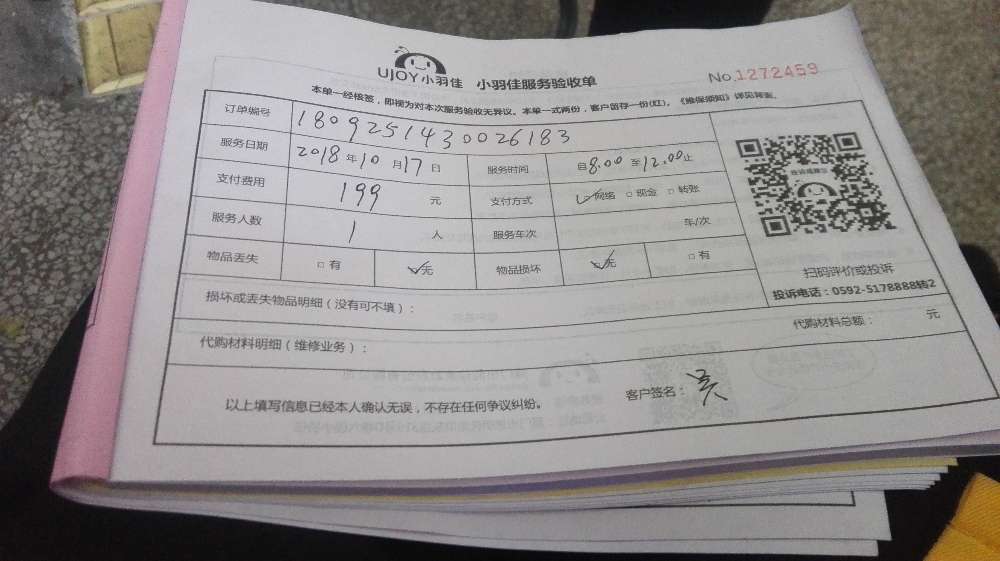 UJOY小羽佳 小羽佳服务验收单 No.1272459
本单一经核签，即视为对本次服务验收无异议。本单一式两份，客户留存一份(红)。《维保须知》详见背面。
订单编号 1809251430026183
服务日期 2018年10月17日 服务时间 自8.00至12.00止
支付费用 199 元 支付方式 ☑网络 □现金 □转账
服务人数 1 人 服务车次 车/次
物品丢失 □有 ☑无 物品损坏 ☑无 □有
扫码评价或投诉
投诉电话：0592-5178888转2
损坏或丢失物品明细（没有可不填）：
代购材料明细（维修业务）： 代购材料总额： 元
以上填写信息已经本人确认无误，不存在任何争议纠纷。 客户签名：吴